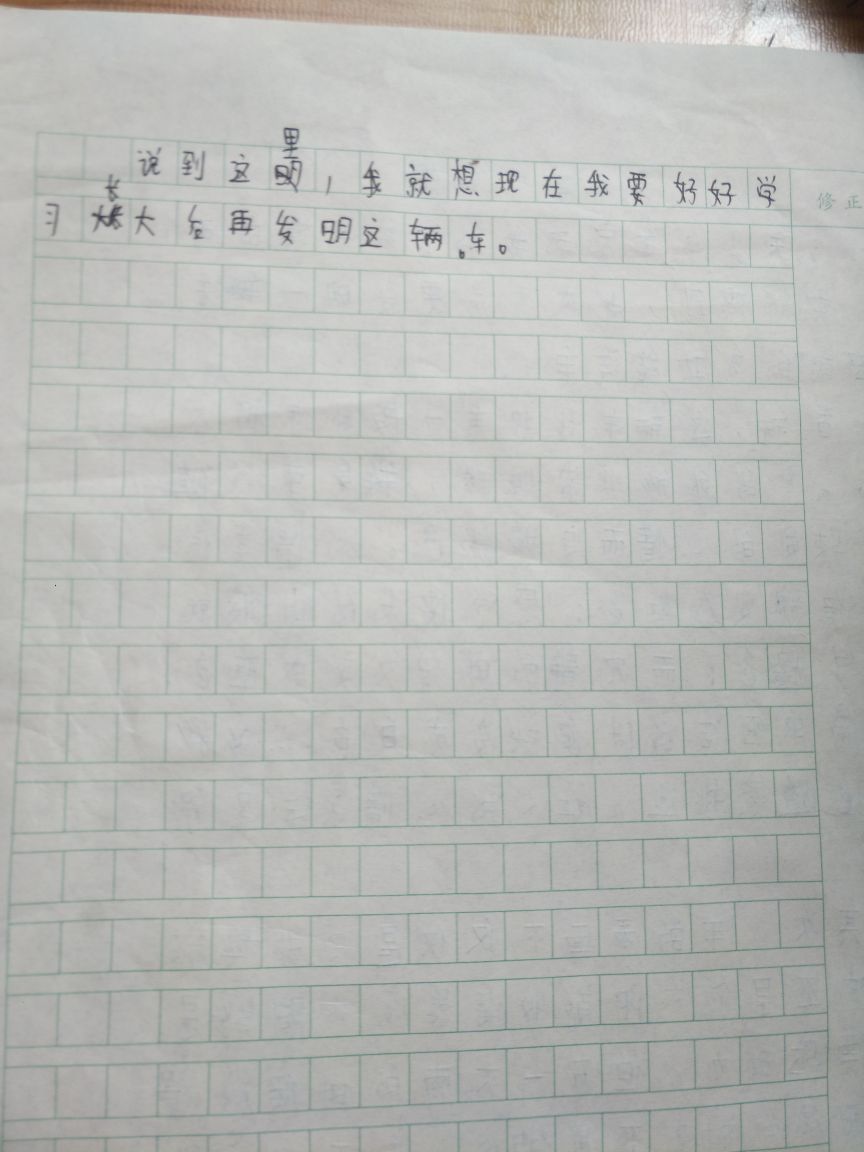 说到这里，我就想现在我要好好学
习长大后再发明这辆车。
修正